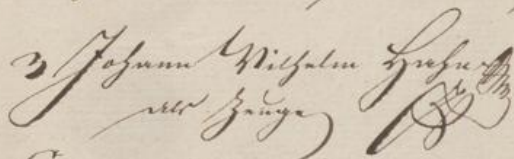 3 Johann Wilhelm Hahn
als Zeuge